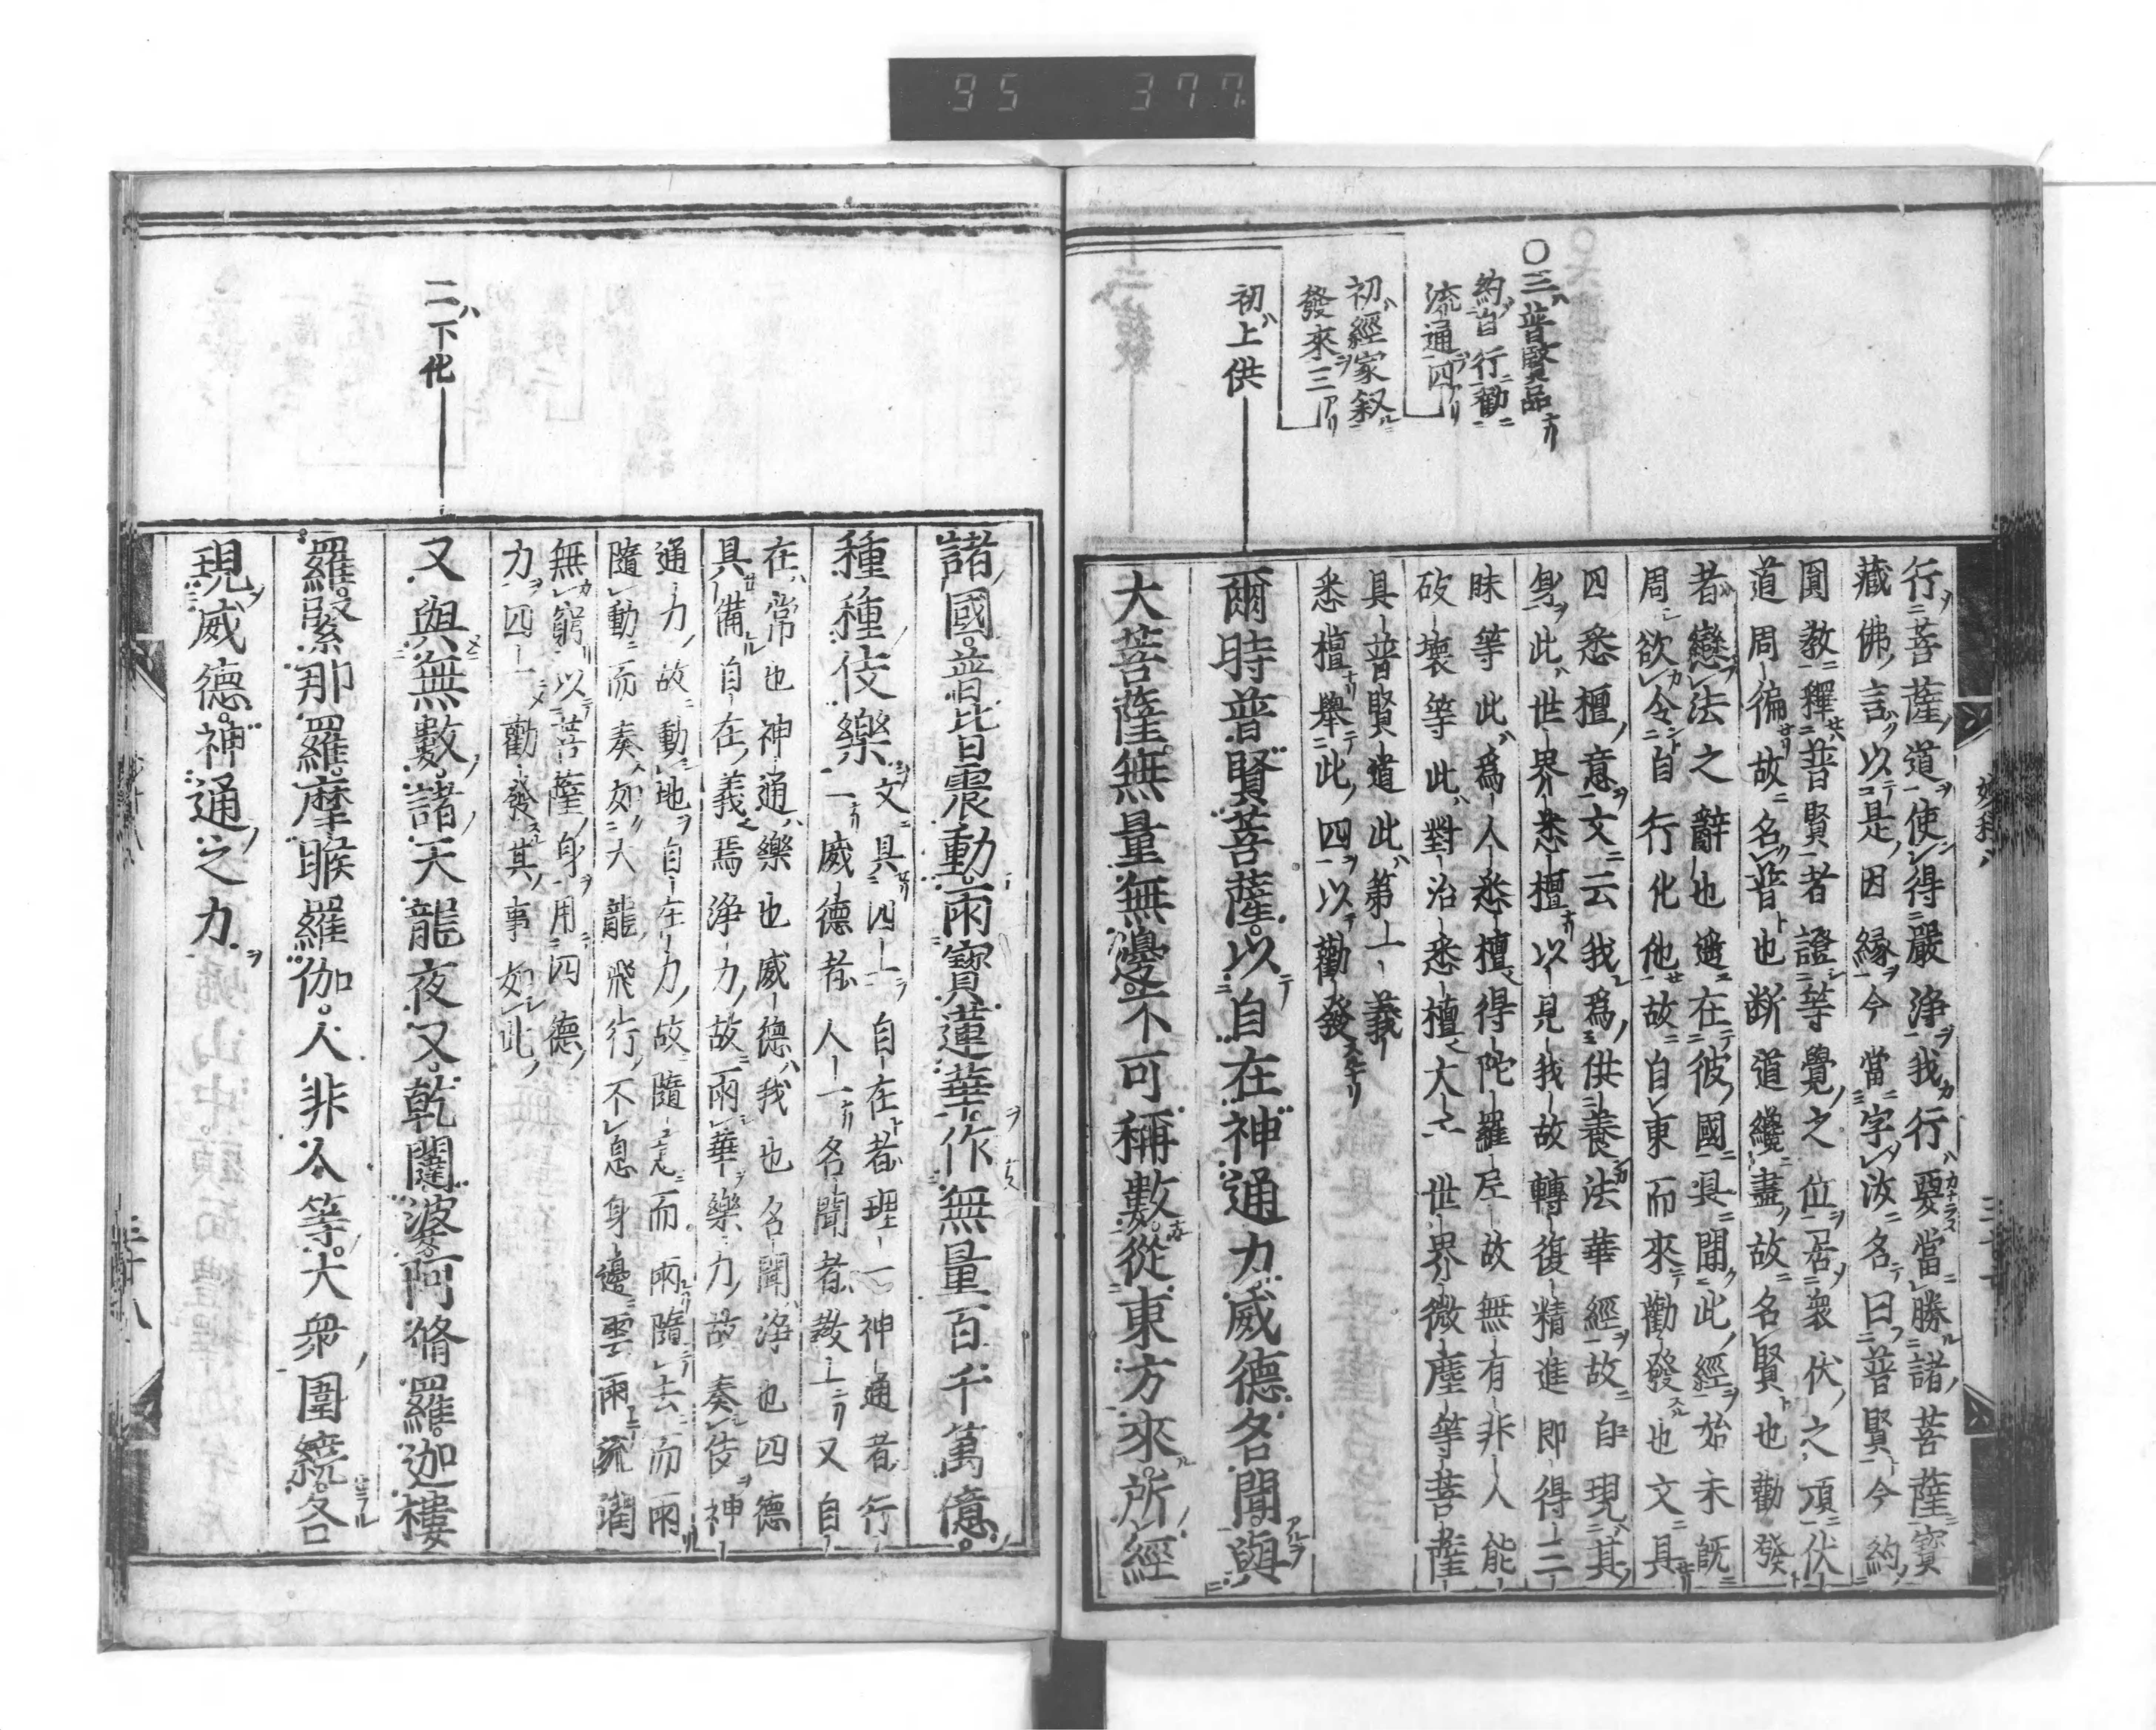 95 377
○三普賢品
約自行勸
流通四
初經家叙
發來三
初上供
行菩薩道使得嚴淨我行要當勝諸菩薩寳
藏佛言以是因縁今當字汝名曰普賢今約
圓教釋普賢者證等覺之位居衆伏之頂伏
道周徧故名普也断道纔盡故名賢也勸發
者戀法之辭也遥在彼國具聞此經始末既
周欲令自行化他故自東而來勸發也文具
四悉檀意文云我爲供養法華經故自現其
身此世界悉檀以見我故轉復精進即得三
昧等此爲人悉檀得陀羅尼故無有非人能
破壊等此對治悉檀大千世界微塵等菩薩
具普賢道此第一義
悉檀舉此四以勸發
爾時普賢菩薩以自在神通力威德名聞與
大菩薩無量無邊不可稱數從東方來所經
諸國普皆震動雨寳蓮華作無量百千萬億
種種伎樂
文具四一自在者理一神通者行
一威德者人一名聞者教一又自
在常也神通樂也威德我也名聞淨也四德
具備自在義焉淨力故雨華樂力故奏伎神
通力故動地自在力故隨意而雨隨去而雨
隨動而奏如大龍飛行不息身邊雲雨流潤
無窮以菩薩身用四德
力四一勸發其事如此
二下化
又與無數諸天龍夜叉乾闥婆阿脩羅迦樓
羅緊那羅摩睺羅伽人非人等大衆圍繞各
現威德神通之力